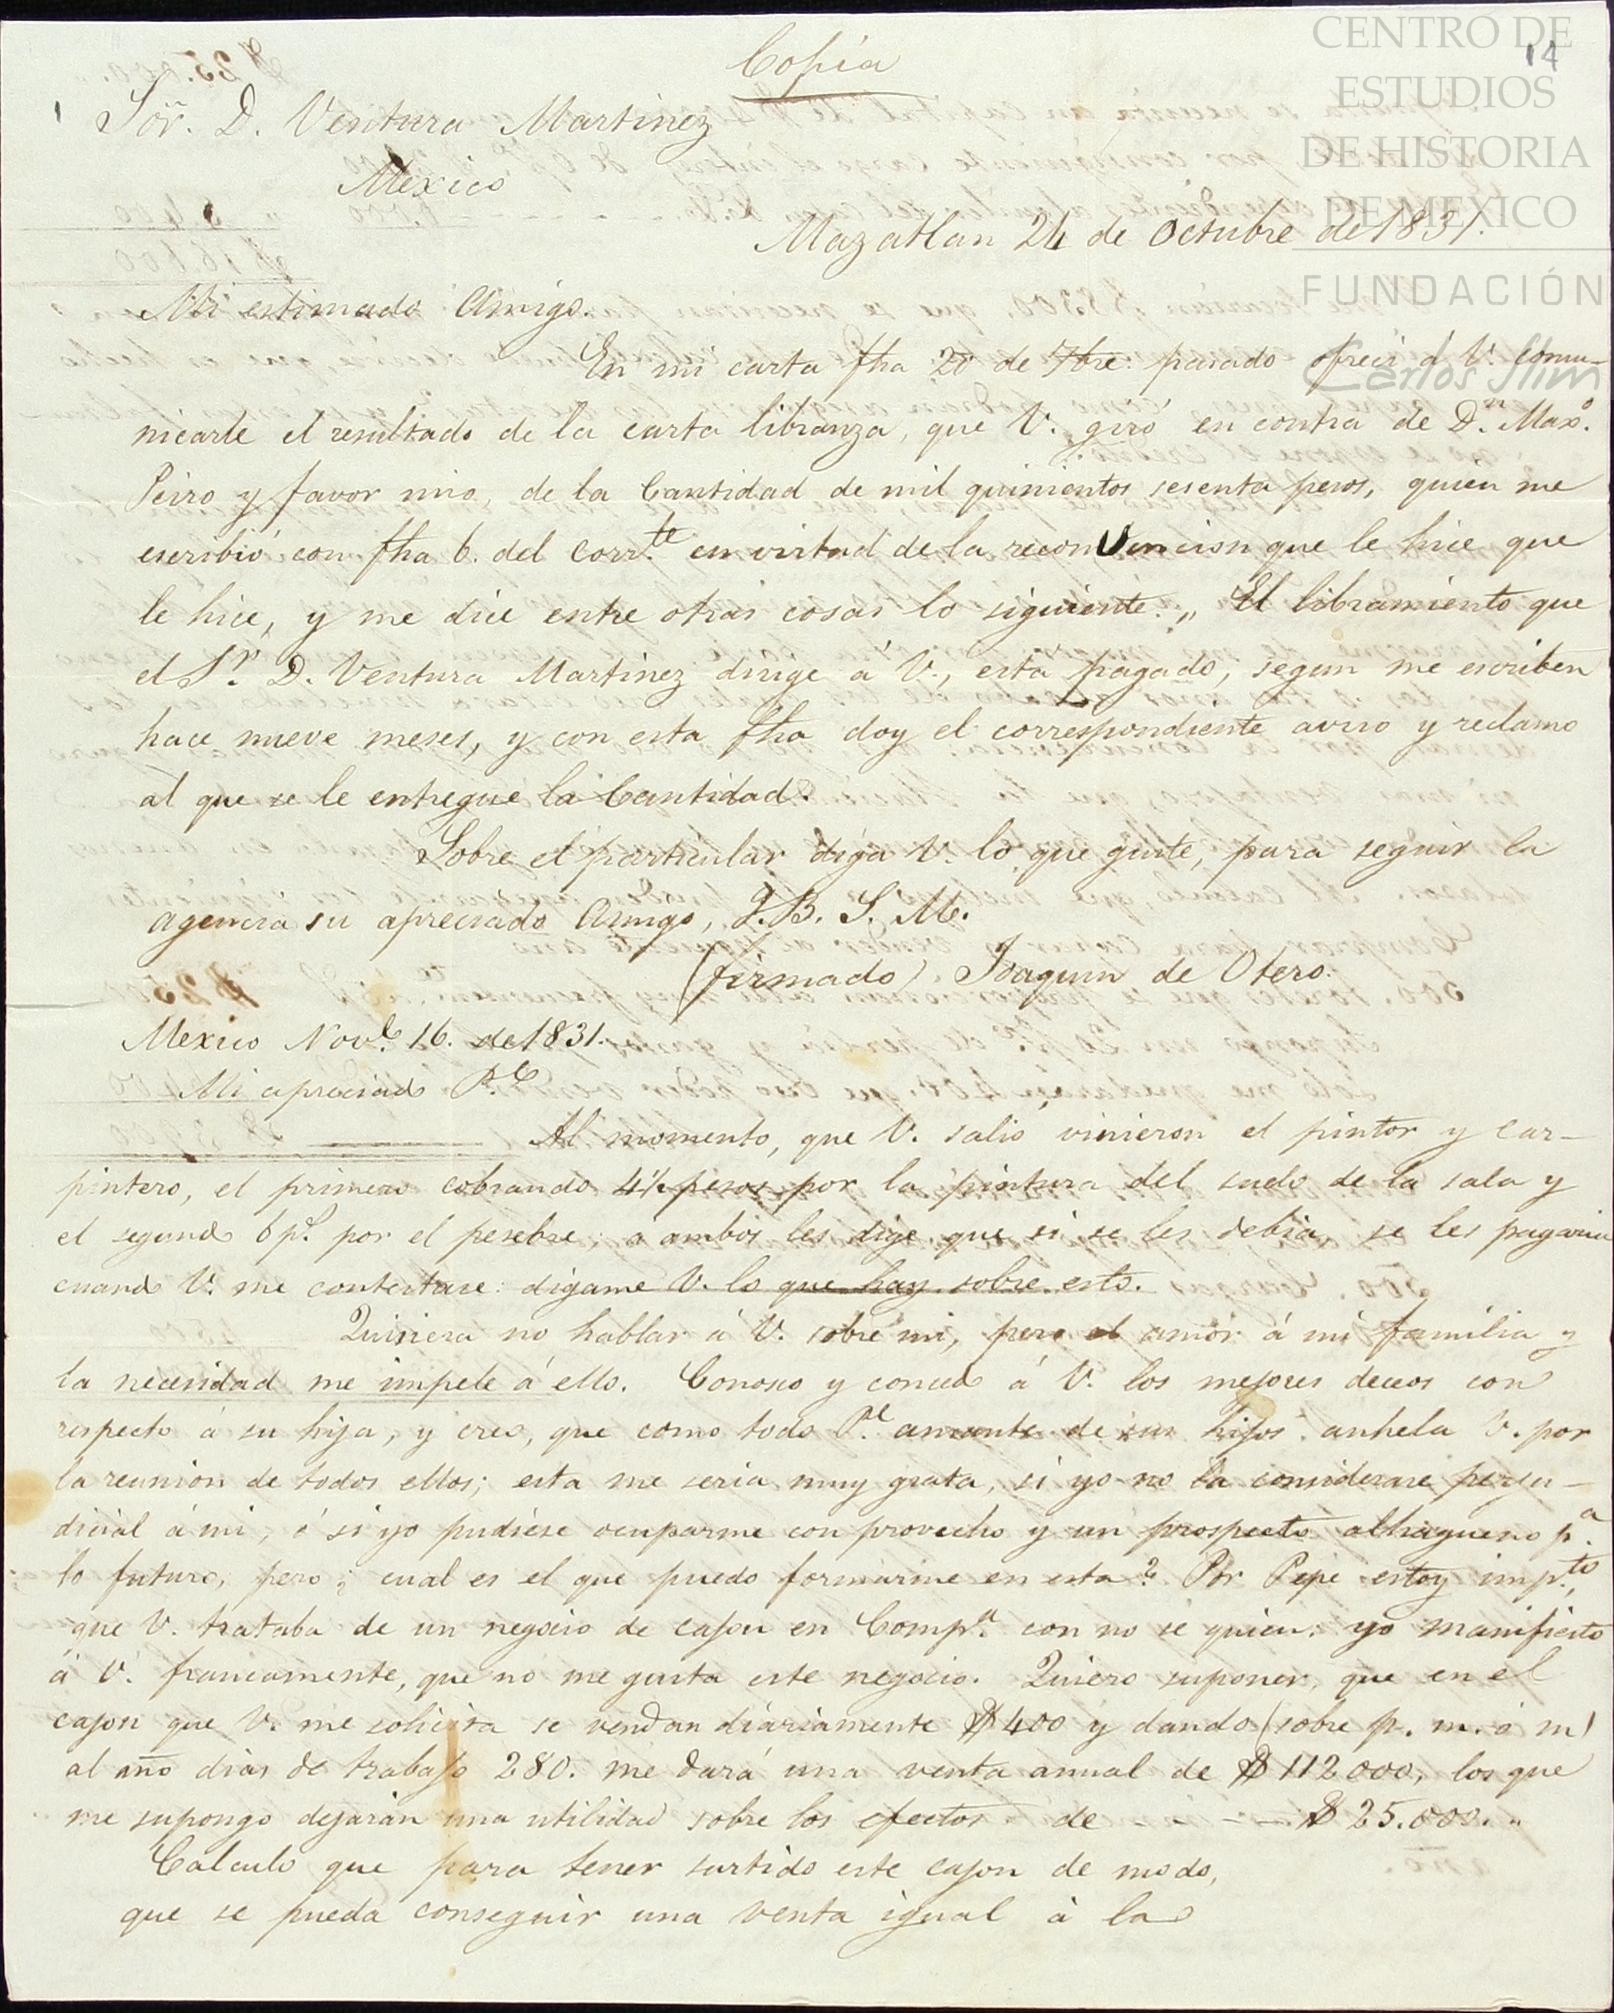 Copia
14
Sor. D. Ventura Martinez
Mexico
Mazatlan 24 de Octubre de 1831.
Mi estimado Amigo.
En mi carta fha 20 de 7bre. pasado ofreci á V. comu-
nicarle el resultado de la carta libranza, que V. giró en contra de Dn. Maxo.
Peiro y favor mio, de la Cantidad de mil quinientos sesenta pesos, quien me
escribió con fha 6. del corrte. en virtud de la reconvencion que le hice que
le hice, y me dice entre otras cosas lo siguiente. „ El libramiento que
el Sr. D. Ventura Martinez dirige á V., está pagado, segun me escriben
hace nueve meses, y con esta fha doy el correspondiente aviso y reclamo
al que se le entregue la Cantidad.
Sobre el particular diga V. lo que guste, para seguir la
agencia su apreciado Amigo, Q. B. S. M.
(firmado) Joaquin de Otero.
Mexico Nove. 16. de 1831.
Mi apreciado Pe.
Al momento, que V. salió vinieron el pintor y car-
pintero, el primero cobrando 4½ pesos por la pintura del suelo de la sala y
el segundo 6 ps. por el pesebre; a ambos les dige que si se les debia se les pagaria
cuando V. me contestase: digame V. lo que hay sobre esto.
Quisiera no hablar á V. sobre mi, pero el amor á mi familia y
la necesidad me impele á ello. Conosco y concedo á V. los mejores deceos con
respecto á su hija, y creo, que como todo Pe. amante de sus hijos anhela V. por
la reunion de todos ellos; esta me seria muy grata, si yo no la considerase perju-
dicial á mi, ó si yo pudiese ocuparme con provecho y un prospecto alhagueno pa.
lo futuro, pero ¿ cual es el que puedo formarme en esta? Por Pepe estoy impto.
que V. trataba de un negocio de cajon en Compa. con no se quien: yo manifiesto
á V. francamente, que no me gusta este negocio. Quiero suponer, que en el
cajon que V. me solicita se vendan diariamente $ 400 y dando (sobre p. m. o m)
al año dias de trabajo 280. me dará una venta anual de $ 112000, los que
me supongo dejarán una utilidad sobre los efectos de - - - - $ 25.000. „
Calculo que para tener surtido este cajon de modo,
que se pueda conseguir una venta igual á la
CENTRO DE
ESTUDIOS
DE HISTORIA
DE MEXICO
FUNDACIÓN
Carlos Slim